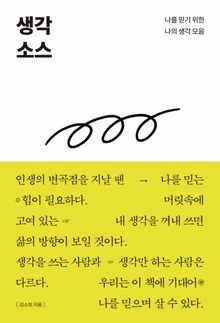 생각
소스
나를 믿기 위한
나의 생각 모음
인생의 변곡점을 지날 땐 → 나를 믿는
힘이 필요하다. 머릿속에
고여 있는 내 생각을 꺼내 쓰면
삶의 방향이 보일 것이다.
생각을 쓰는 사람과 생각만 하는 사람은
다르다. 우리는 이 책에 기대어
나를 믿으며 살 수 있다.
[ 김소희 지음 ]